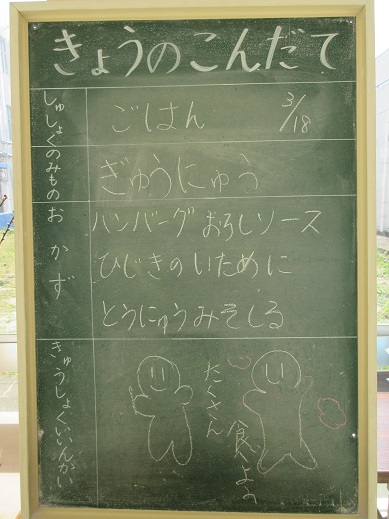 きょうのこんだて
しゅしょく
ごはん
3/18
のみもの
ぎゅうにゅう
おかず
ハンバーグおろしソース
ひじきのいために
とうにゅうみそしる
きゅうしょくいいんかい
たくさん
食べよう